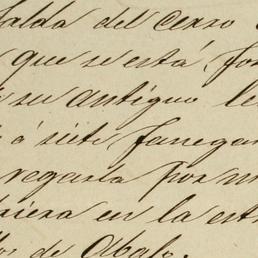 falda del cerro
que se está for
su antiguo le
ó siete fanega
regarla por m
siera en la est
de Abalo.